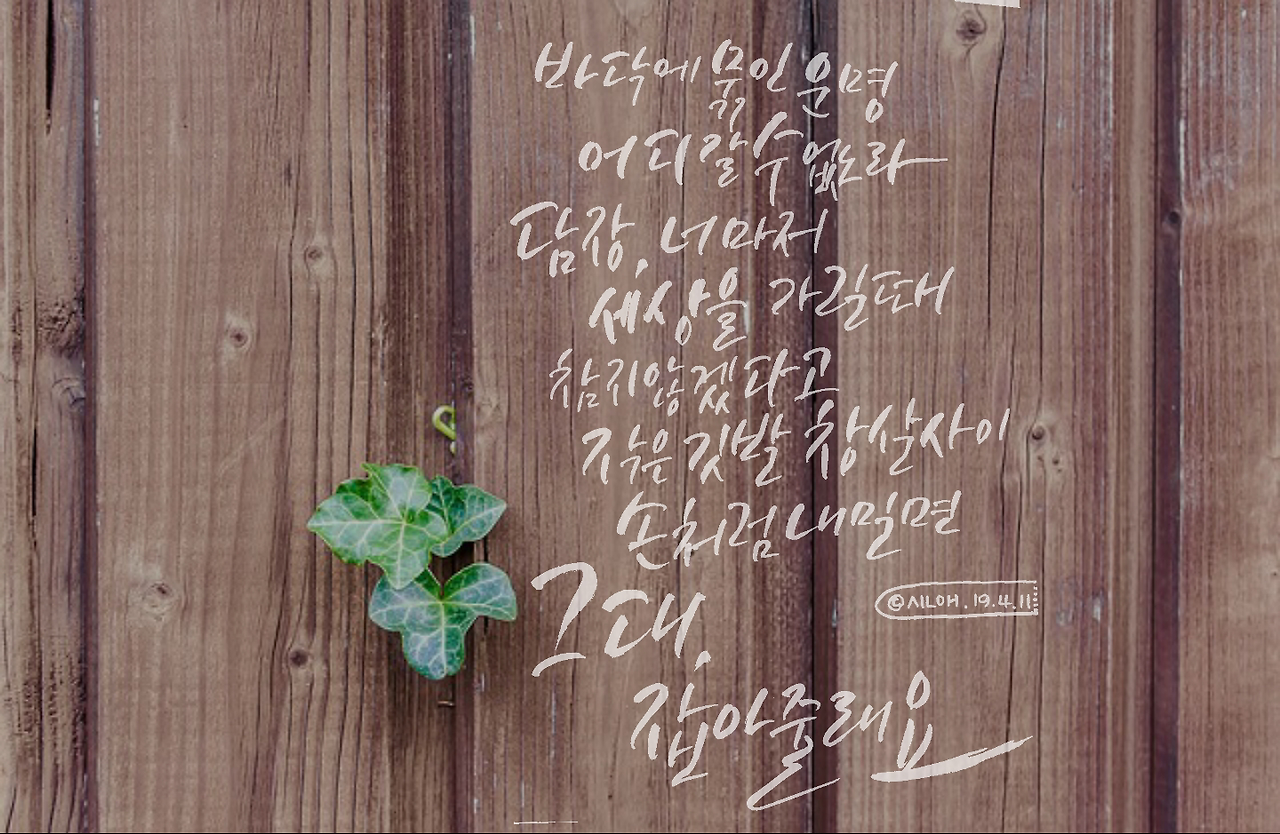 바닥에 묶인 운명
어찌할 수 없노라
담장, 너마저
세상을 가릴때
참지 않겠다고
작은 깃발 창살 사이
손처럼 내밀면
그대,
잡아줄래요
©시노애. 19.4.11